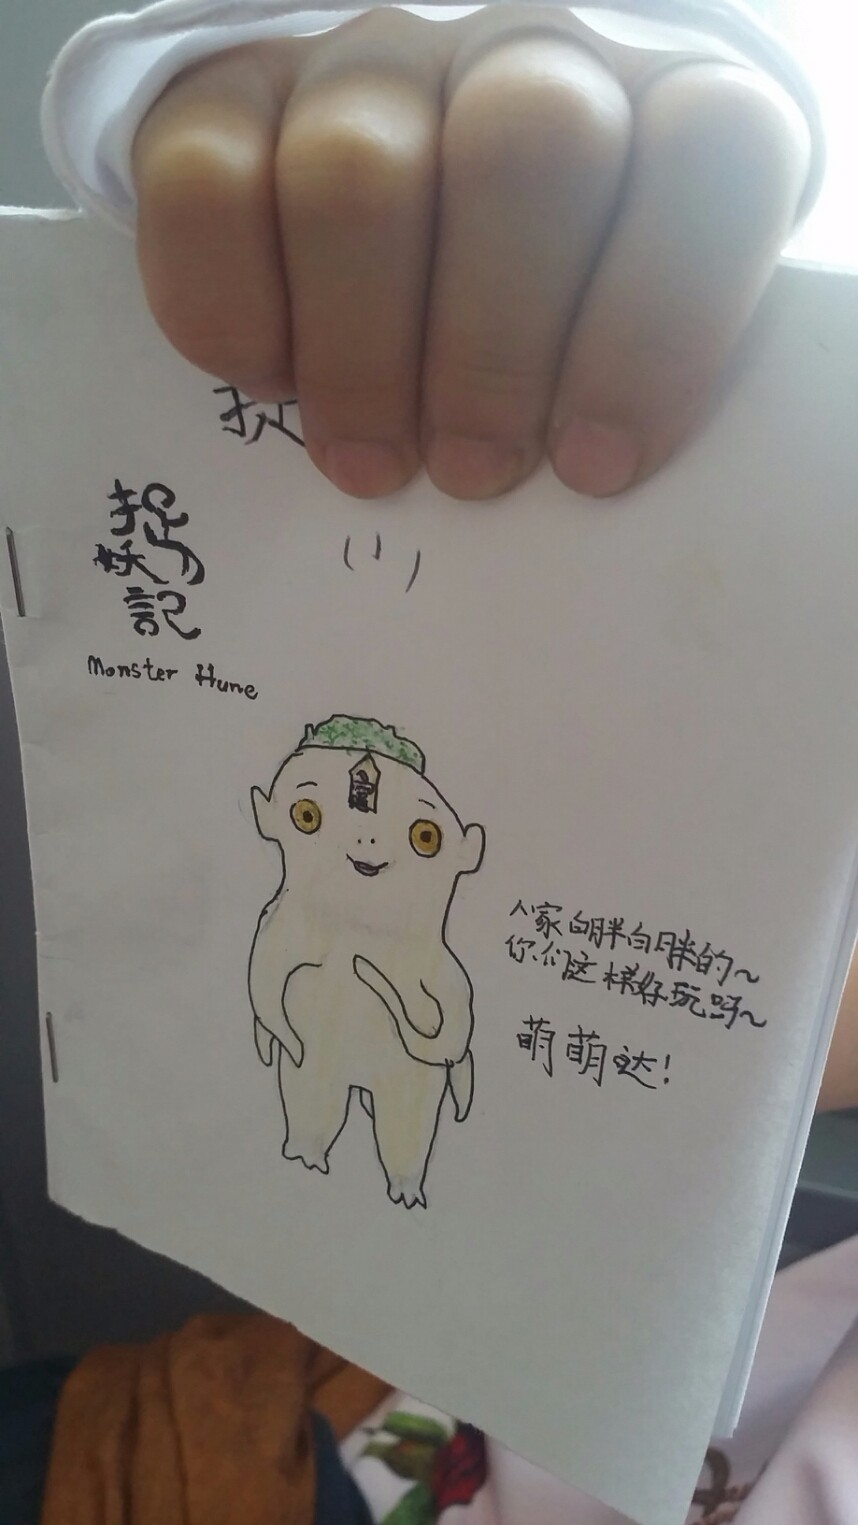 捉
捉
妖
記
Monster Hune
人家白胖白胖的~
你们这样好玩吗~
萌萌哒!